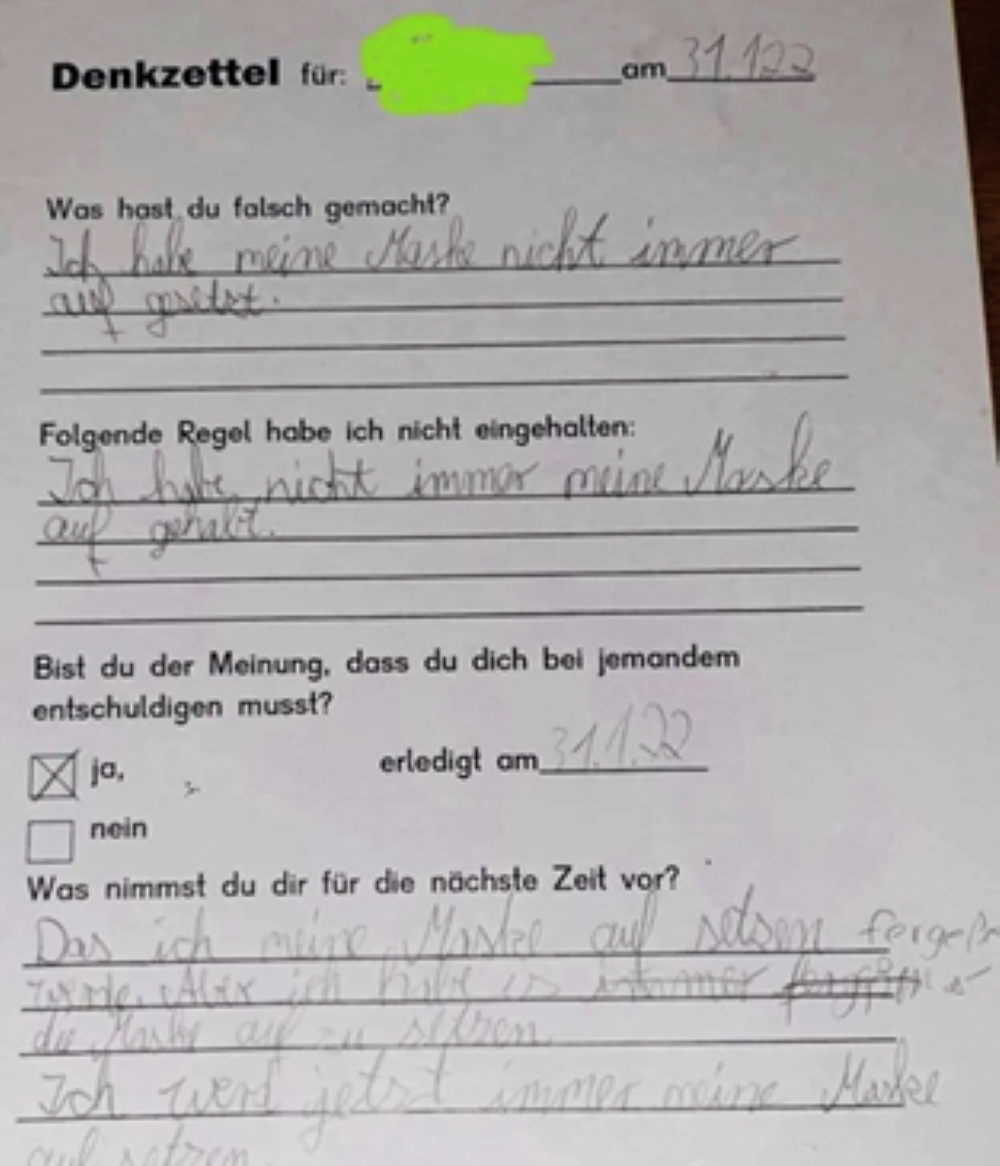 Denkzettel für: am 31.122
Was hast du falsch gemacht?
Ich habe meine Maske nicht immer
auf gesetzt.
Folgende Regel habe ich nicht eingehalten:
Ich habe nicht immer meine Maske
auf gehabt.
Bist du der Meinung, dass du dich bei jemandem
entschuldigen musst?
ja, erledigt am 31.1.22
nein
Was nimmst du dir für die nächste Zeit vor?
Das ich meine Maske auf setsen
werde. Aber ich habe es
die Maske auf zu setzen
Ich werd jetst immer meine Maske
auf setzen